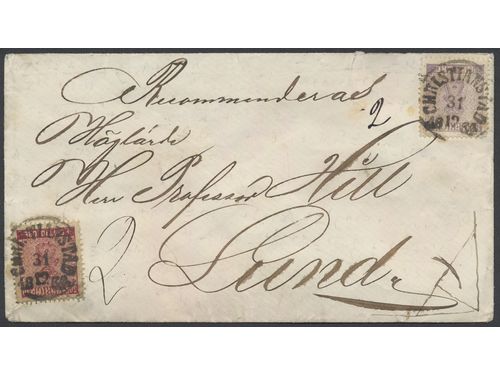 Recommenderas
2
Höglärde
Herr Professor Hill
2
Lund
CHRISTIANSTAD
31
12
CHRISTIANSTAD
31
12